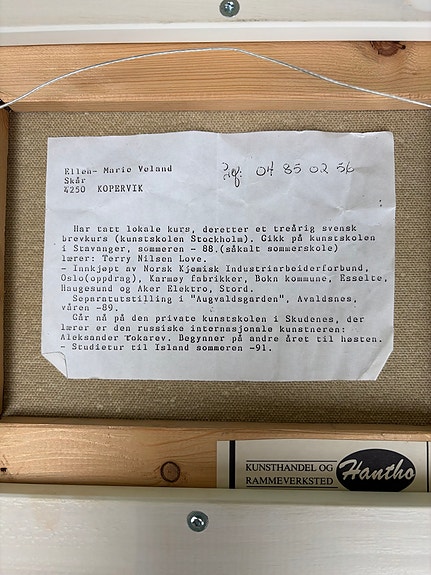 Ellen- Marie Veland
Skår
4250 KOPERVIK
Tlf: 04 85 02 56
Har tatt lokale kurs, deretter et treårig svensk
brevkurs (kunstskolen Stockholm). Gikk på kunstskolen
i Stavanger, sommeren - 88.(såkalt sommerskole)
lærer: Terry Nilsen Love.
- Innkjøpt av Norsk Kjemisk Industriarbeiderforbund,
Oslo(oppdrag), Karmøy fabrikker, Bokn kommune, Esselte,
Haugesund og Aker Elektro, Stord.
Separatutstilling i "Augvaldsgarden", Avaldsnes,
våren -89.
Går nå på den private kunstskolen i Skudenes, der
lærer er den russiske internasjonale kunstneren:
Aleksander Tokarev. Begynner på andre året til høsten.
- Studietur til Island sommeren -91.
KUNSTHANDEL OG
RAMMEVERKSTED
Hantho